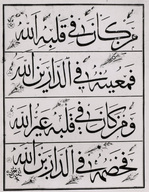 ومن كان في قلبه الله
فمعينه في الدارين الله
ومن كان في قلبه غير الله
فخصمه في الدارين الله